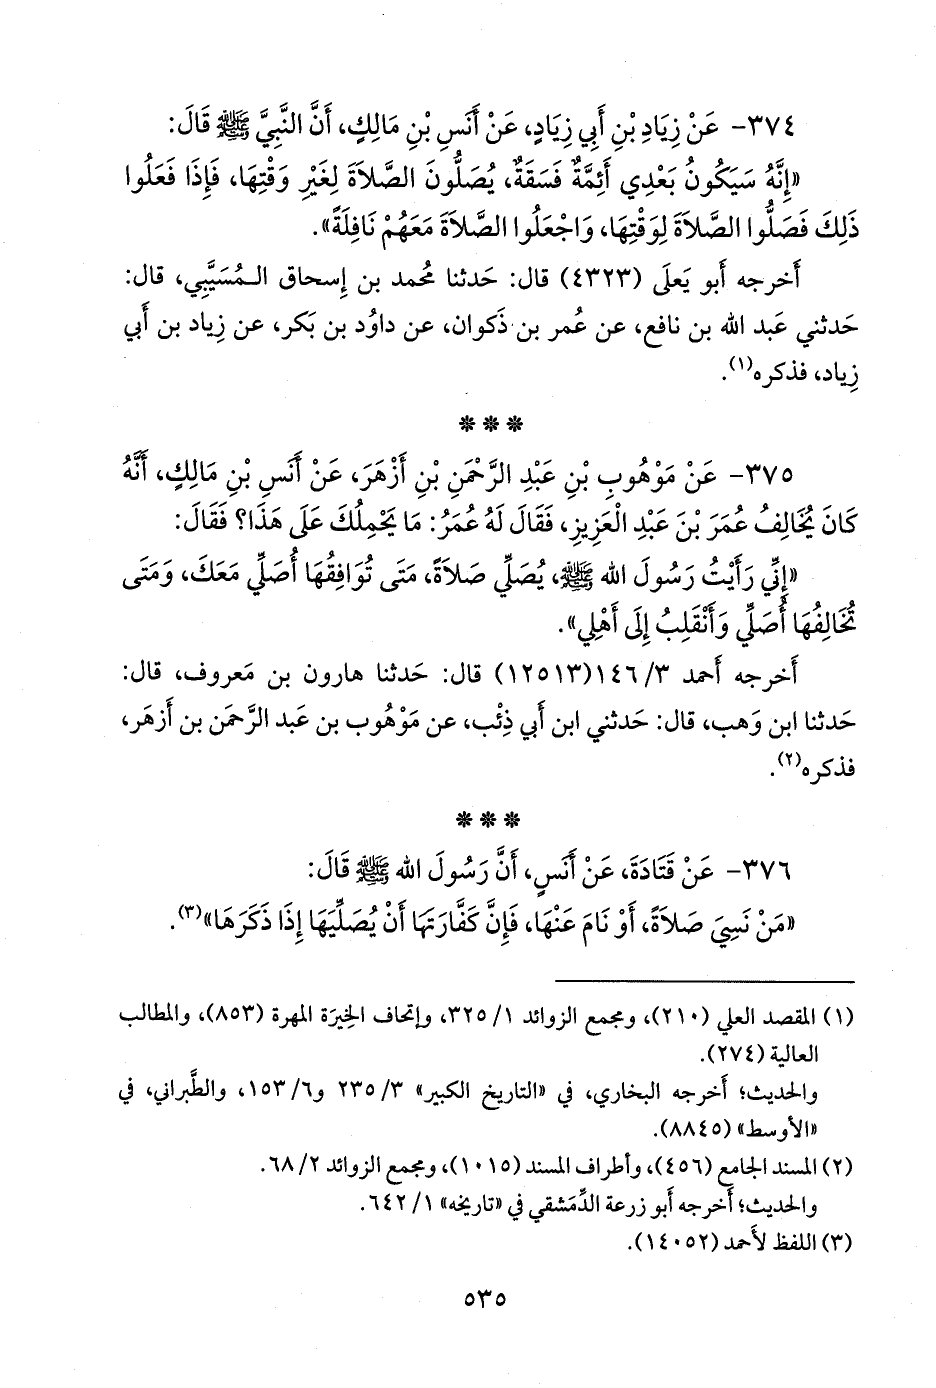 ٣٧٤- عَنْ زِيَادِ بْنِ أَبِي زِيَادٍ، عَنْ أَنَسِ بْنِ مَالِكٍ، أَنَّ النَّبِيَّ ﷺ قَالَ:
«إِنَّهُ سَيَكُونُ بَعْدِي أَئِمَّةٌ فَسَقَةٌ، يُصَلُّونَ الصَّلاَةَ لِغَيْرِ وَقْتِهَا، فَإِذَا فَعَلُوا
ذَلِكَ فَصَلُّوا الصَّلاَةَ لِوَقْتِهَا، وَاجْعَلُوا الصَّلاَةَ مَعَهُمْ نَافِلَةً».
أَخرجه أَبو يَعلَى (٤٣٢٣) قال: حَدثنا مُحمد بن إِسحاق الـمُسَيَّبي، قال:
حَدثني عَبد الله بن نافع، عن عُمر بن ذَكوان، عن داوُد بن بَكر، عن زِياد بن أَبي
زِياد، فذكره(١).
***
٣٧٥- عَنْ مَوْهُوبِ بْنِ عَبْدِ الرَّحْمَنِ بْنِ أَزْهَرَ، عَنْ أَنَسِ بْنِ مَالِكٍ، أَنَّهُ
كَانَ يُخَالِفُ عُمَرَ بْنَ عَبْدِ الْعَزِيزِ، فَقَالَ لَهُ عُمَرُ: مَا يَحْمِلُكَ عَلَى هَذَا؟ فَقَالَ:
«إِنِّي رَأَيْتُ رَسُولَ الله ﷺ، يُصَلِّي صَلاَةً، مَتَى تُوَافِقُهَا أُصَلِّي مَعَكَ، وَمَتَى
تُخَالِفُهَا أُصَلِّي وَأَنْقَلِبُ إِلَى أَهْلِي».
أَخرجه أَحمد ٣/ ١٤٦(١٢٥١٣) قال: حَدثنا هارون بن مَعروف، قال:
حَدثنا ابن وَهب، قال: حَدثني ابن أَبي ذِئْب، عن مَوْهُوب بن عَبد الرَّحمَن بن أَزهَر،
فذكره(٢).
***
٣٧٦- عَنْ قَتَادَةَ، عَنْ أَنَسٍ، أَنَّ رَسُولَ الله ﷺ قَالَ:
«مَنْ نَسِيَ صَلاَةً، أَوْ نَامَ عَنْهَا، فَإِنَّ كَفَّارَتَهَا أَنْ يُصَلِّيَهَا إِذَا ذَكَرَهَا»(٣).
(١) المقصد العلي (٢١٠)، ومجمع الزوائد ١/ ٣٢٥، وإتحاف الخِيرَة المهرة (٨٥٣)، والمطالب
العالية (٢٧٤).
والحديث؛ أَخرجه البخاري، في «التاريخ الكبير» ٣/ ٢٣٥ و٦/ ١٥٣، والطَّبراني، في
«الأوسط» (٨٨٤٥).
(٢) المسند الجامع (٤٥٦)، وأطراف المسند (١٠١٥)، ومجمع الزوائد ٢/ ٦٨.
والحديث؛ أَخرجه أَبو زرعة الدِّمَشقي في «تاريخه» ١/ ٦٤٢.
(٣) اللفظ لأَحمد (١٤٠٥٢).
٥٣٥